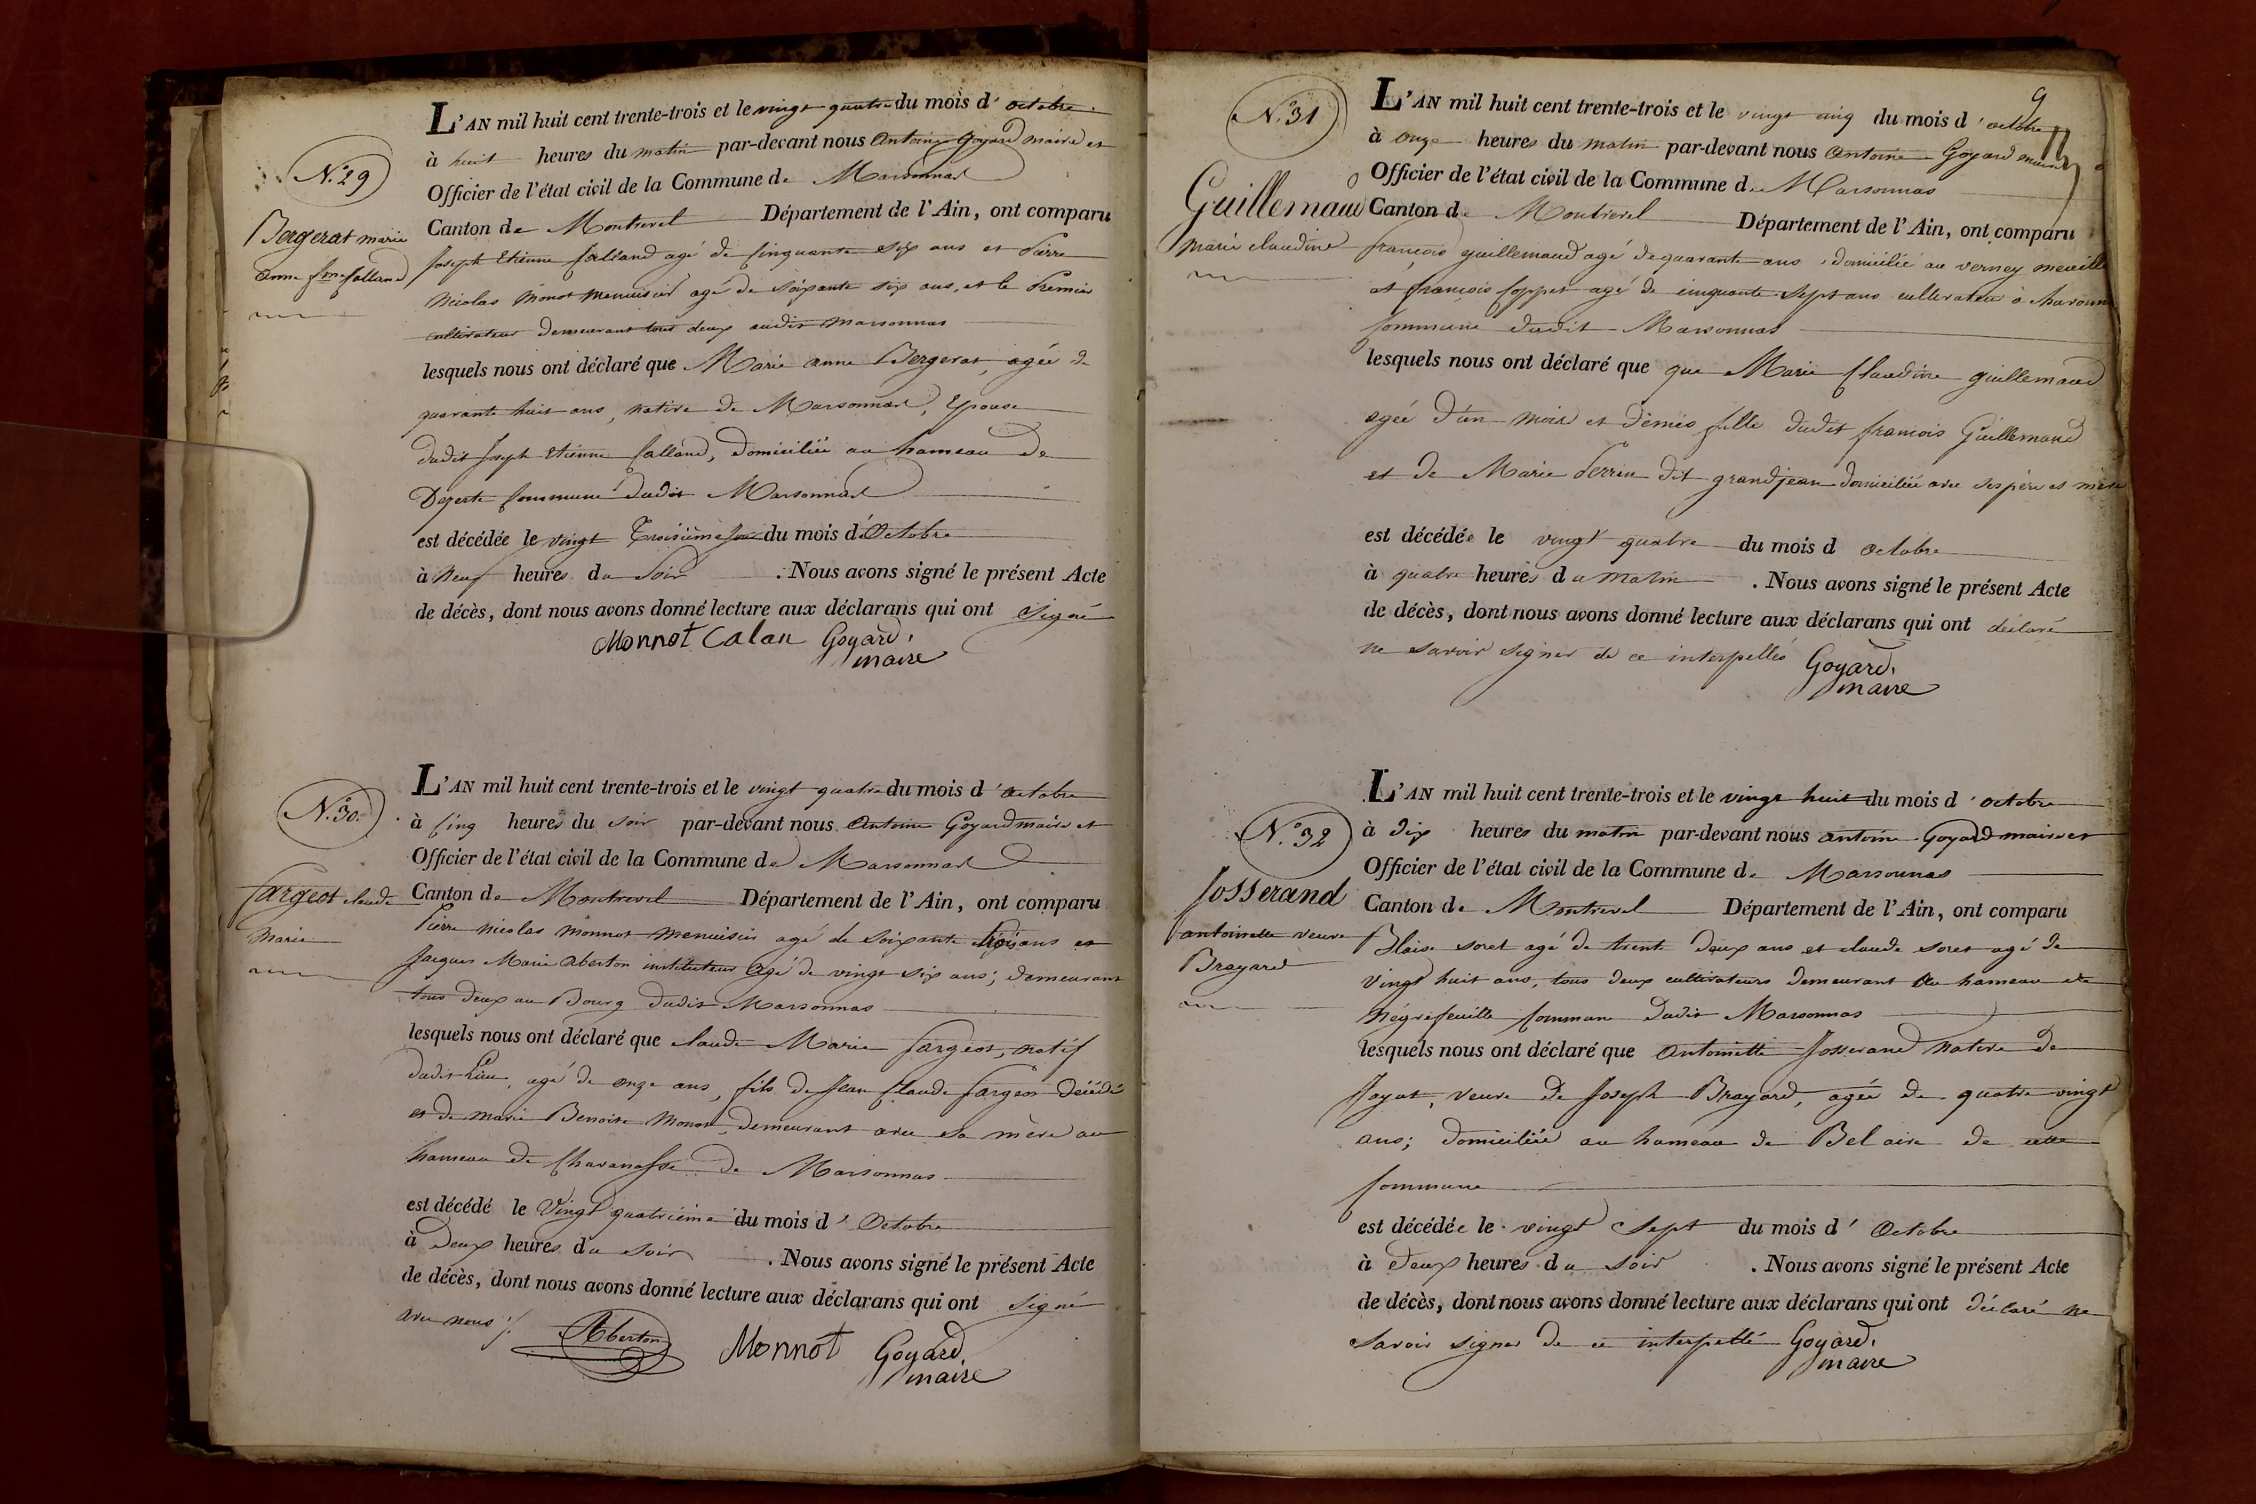 N.° 29
Bergerat marie
anne fme Calland
L'AN mil huit cent trente-trois et le vingt quatre du mois d'octobre
à huit heures du matin par-devant nous Antoine Goyard maire et
Officier de l'état civil de la Commune de Marsonnas
Canton de Montrevel Département de l'Ain, ont comparu
Joseph Etienne Calland agé de Cinquante six ans et Pierre
Nicolas Monot Menuisier agé de soixante six ans, et le Premier
cultivateur demeurant tous deux audit Marsonnas
lesquels nous ont déclaré que Marie anne Bergerat, agée de
quarante huit ans, native de Marsonnas, Epouse
dudit Joseph Etienne Calland, domiciliée au hameau de
Commune dudit Marsonnas
est décédée le vingt Troisième jour du mois d'Octobre
à Neuf heures du Soir . Nous avons signé le présent Acte
de décès, dont nous avons donné lecture aux déclarans qui ont signé
Monnot Calan Goyard,
maire
N.° 30.
Fargeot claude
Marie
L'AN mil huit cent trente-trois et le vingt quatre du mois d'octobre
à Cinq heures du soir par-devant nous Antoine Goyard maire et
Officier de l'état civil de la Commune de Marsonnas
Canton de Montrevel Département de l'Ain, ont comparu
Pierre Nicolas Monnot Menuisier agé de soixante ans et
Jacques Marie Aberton instituteur agé de vingt six ans; demeurant
tous deux au Bourg dudit Marsonnas
lesquels nous ont déclaré que claude Marie Fargeot, natif
dudit Lieu, agé de onze ans, fils de Jean Claude Fargeot décédé
et de marie Benoite Monot, demeurant avec sa mère au
hameau de Chavanosse de Marsonnas
est décédé le Vingt quatrième du mois d'Octobre
à Deux heures du soir . Nous avons signé le présent Acte
de décès, dont nous avons donné lecture aux déclarans qui ont signé
avec nous ./.
Aberton Monnot Goyard,
maire
9
N.° 31
Guillemaud
Marie claudine
L'AN mil huit cent trente-trois et le vingt cinq du mois d'octobre
à onze heures du matin par-devant nous Antoine Goyard maire
Officier de l'état civil de la Commune de Marsonnas
Canton de Montrevel Département de l'Ain, ont comparu
françois guillemaud agé de quarante ans domicilié au verney
et françois Coppet agé de cinquante sept ans cultivateur à
Commune dudit Marsonnas
lesquels nous ont déclaré que que Marie Claudine guillemaud
agée d'un mois et demie fille dudit françois Guillemaud
et de Marie Perrin dit grandjean domiciliée avec ses père et mère
est décédée le vingt quatre du mois d octobre
à quatre heures du matin . Nous avons signé le présent Acte
de décès, dont nous avons donné lecture aux déclarans qui ont déclaré
ne savoir signer de ce interpellés Goyard,
maire
N.° 32
Josserand
antoinette veuve
Brayard
L'AN mil huit cent trente-trois et le vingt huit du mois d'octobre
à dix heures du matin par-devant nous antoine Goyard maire et
Officier de l'état civil de la Commune de Marsonnas
Canton de Montrevel Département de l'Ain, ont comparu
Blaise soret agé de trente deux ans et claude soret agé de
Vingt huit ans, tous deux cultivateurs demeurant Au hameau de
Négrefeuille Commune dudit Marsonnas
lesquels nous ont déclaré que Antoinette Josserand Native de
Jayat, veuve de Joseph Brayard, agée de quatre vingt
ans; domiciliée au hameau de Bel aire de cette
Commune
est décédée le vingt Sept du mois d'Octobre
à Deux heures du Soir . Nous avons signé le présent Acte
de décès, dont nous avons donné lecture aux déclarans qui ont déclaré ne
savoir signer de ce interpellé Goyard,
maire